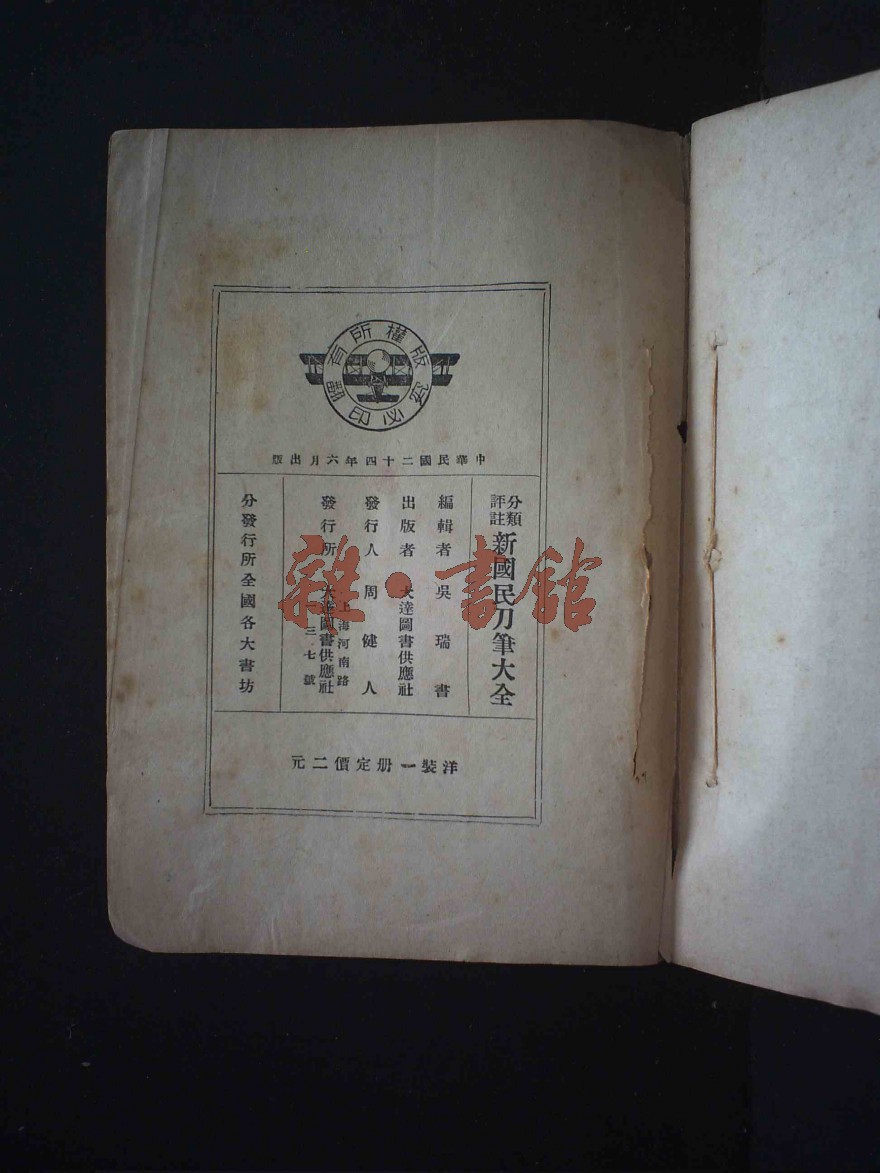 版權所有
翻印必究
中華民國二十四年六月出版
分類
評註
新國民刀筆大全
編輯者 吳瑞書
出版者 大達圖書供應社
發行人 周健人
發行所 上海河南路
三七號
大達圖書供應社
分發行所全國各大書坊
洋裝一册定價二元
雜·書館